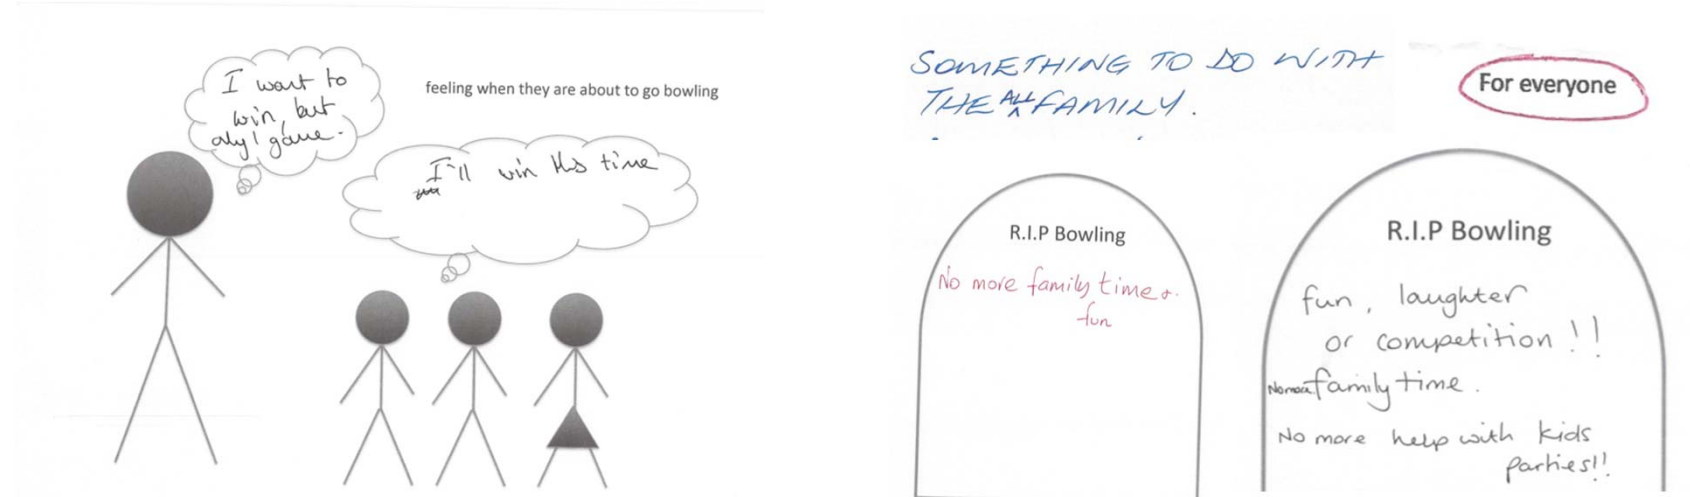 I want to
win, but
only 1 game.
feeling when they are about to go bowling
I'll win this time
SOMETHING TO DO WITH
THE ALL FAMILY.
For everyone
R.I.P Bowling
No more family time &
fun
R.I.P Bowling
fun, laughter
or competition!!
No more family time.
No more help with kids
parties!!